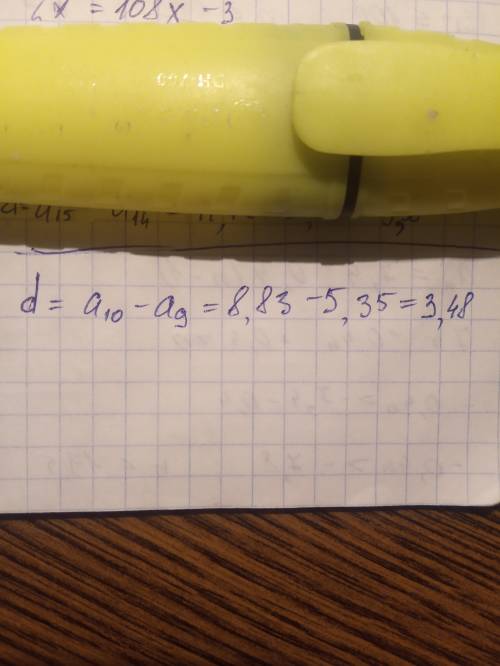 2x = 108x - 3
a15 a14
d = a10 - a9 = 8,83 - 5,35 = 3,48